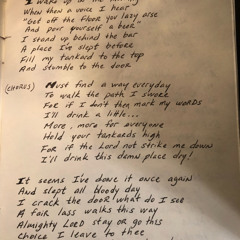 I wake up on the
When then a voice I hear
"Get off the floor you lazy arse
And pour yourself a beer"
I stand up behind the bar
A place I've slept before
Fill my tankard to the top
And stumble to the door
(CHORUS) Must find a way everyday
To walk the path I snook
For if I don't then mark my words
I'll drink a little...
More, more for everyone
Hold your tankards high
For if the Lord not strike me down
I'll drink this damn place dry!
It seems I've done it once again
And slept all bloody day
I crack the door what do I see
A fair lass walks this way
Almighty Lord stay or go this
Choice I leave to thee